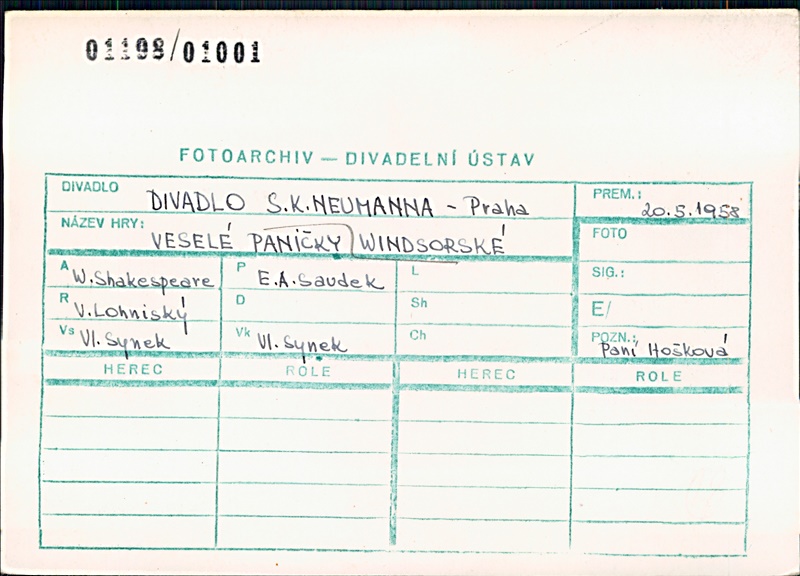 01198/01001
FOTOARCHIV — DIVADELNÍ ÚSTAV
DIVADLO DIVADLO S.K.NEUMANNA - Praha
PREM.: 20.5.1958
NÁZEV HRY: VESELÉ PANIČKY WINDSORSKÉ
FOTO
A W.Shakespeare P E.A.Saudek L SIG.:
R V.Lohniský D Sh E/
Vs Vl.Synek Vk Vl.Synek Ch POZN.: Paní Hošková
HEREC RÓLE HEREC ROLE